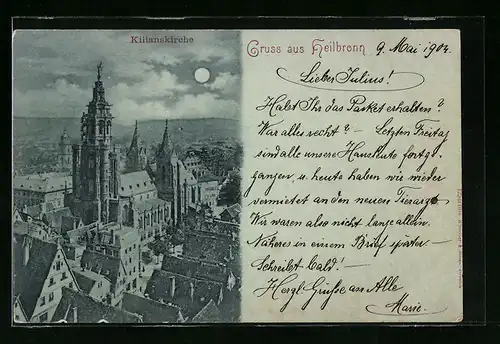 Kilianskirche
Gruss aus Heilbronn
9. Mai 1904
Lieber Julius!
Habt Ihr das Packet erhalten?
War alles recht? – Letzten Freitag
sind alle unsere Hausleute fortge-
gangen, u. heute haben wir wieder
vermietet an den neuen Tierarzt
Wir waren also nicht lange allein.
Näheres in einem Brief später. –
Schreibt bald! –
Herzl. Grüße an Alle
Marie.